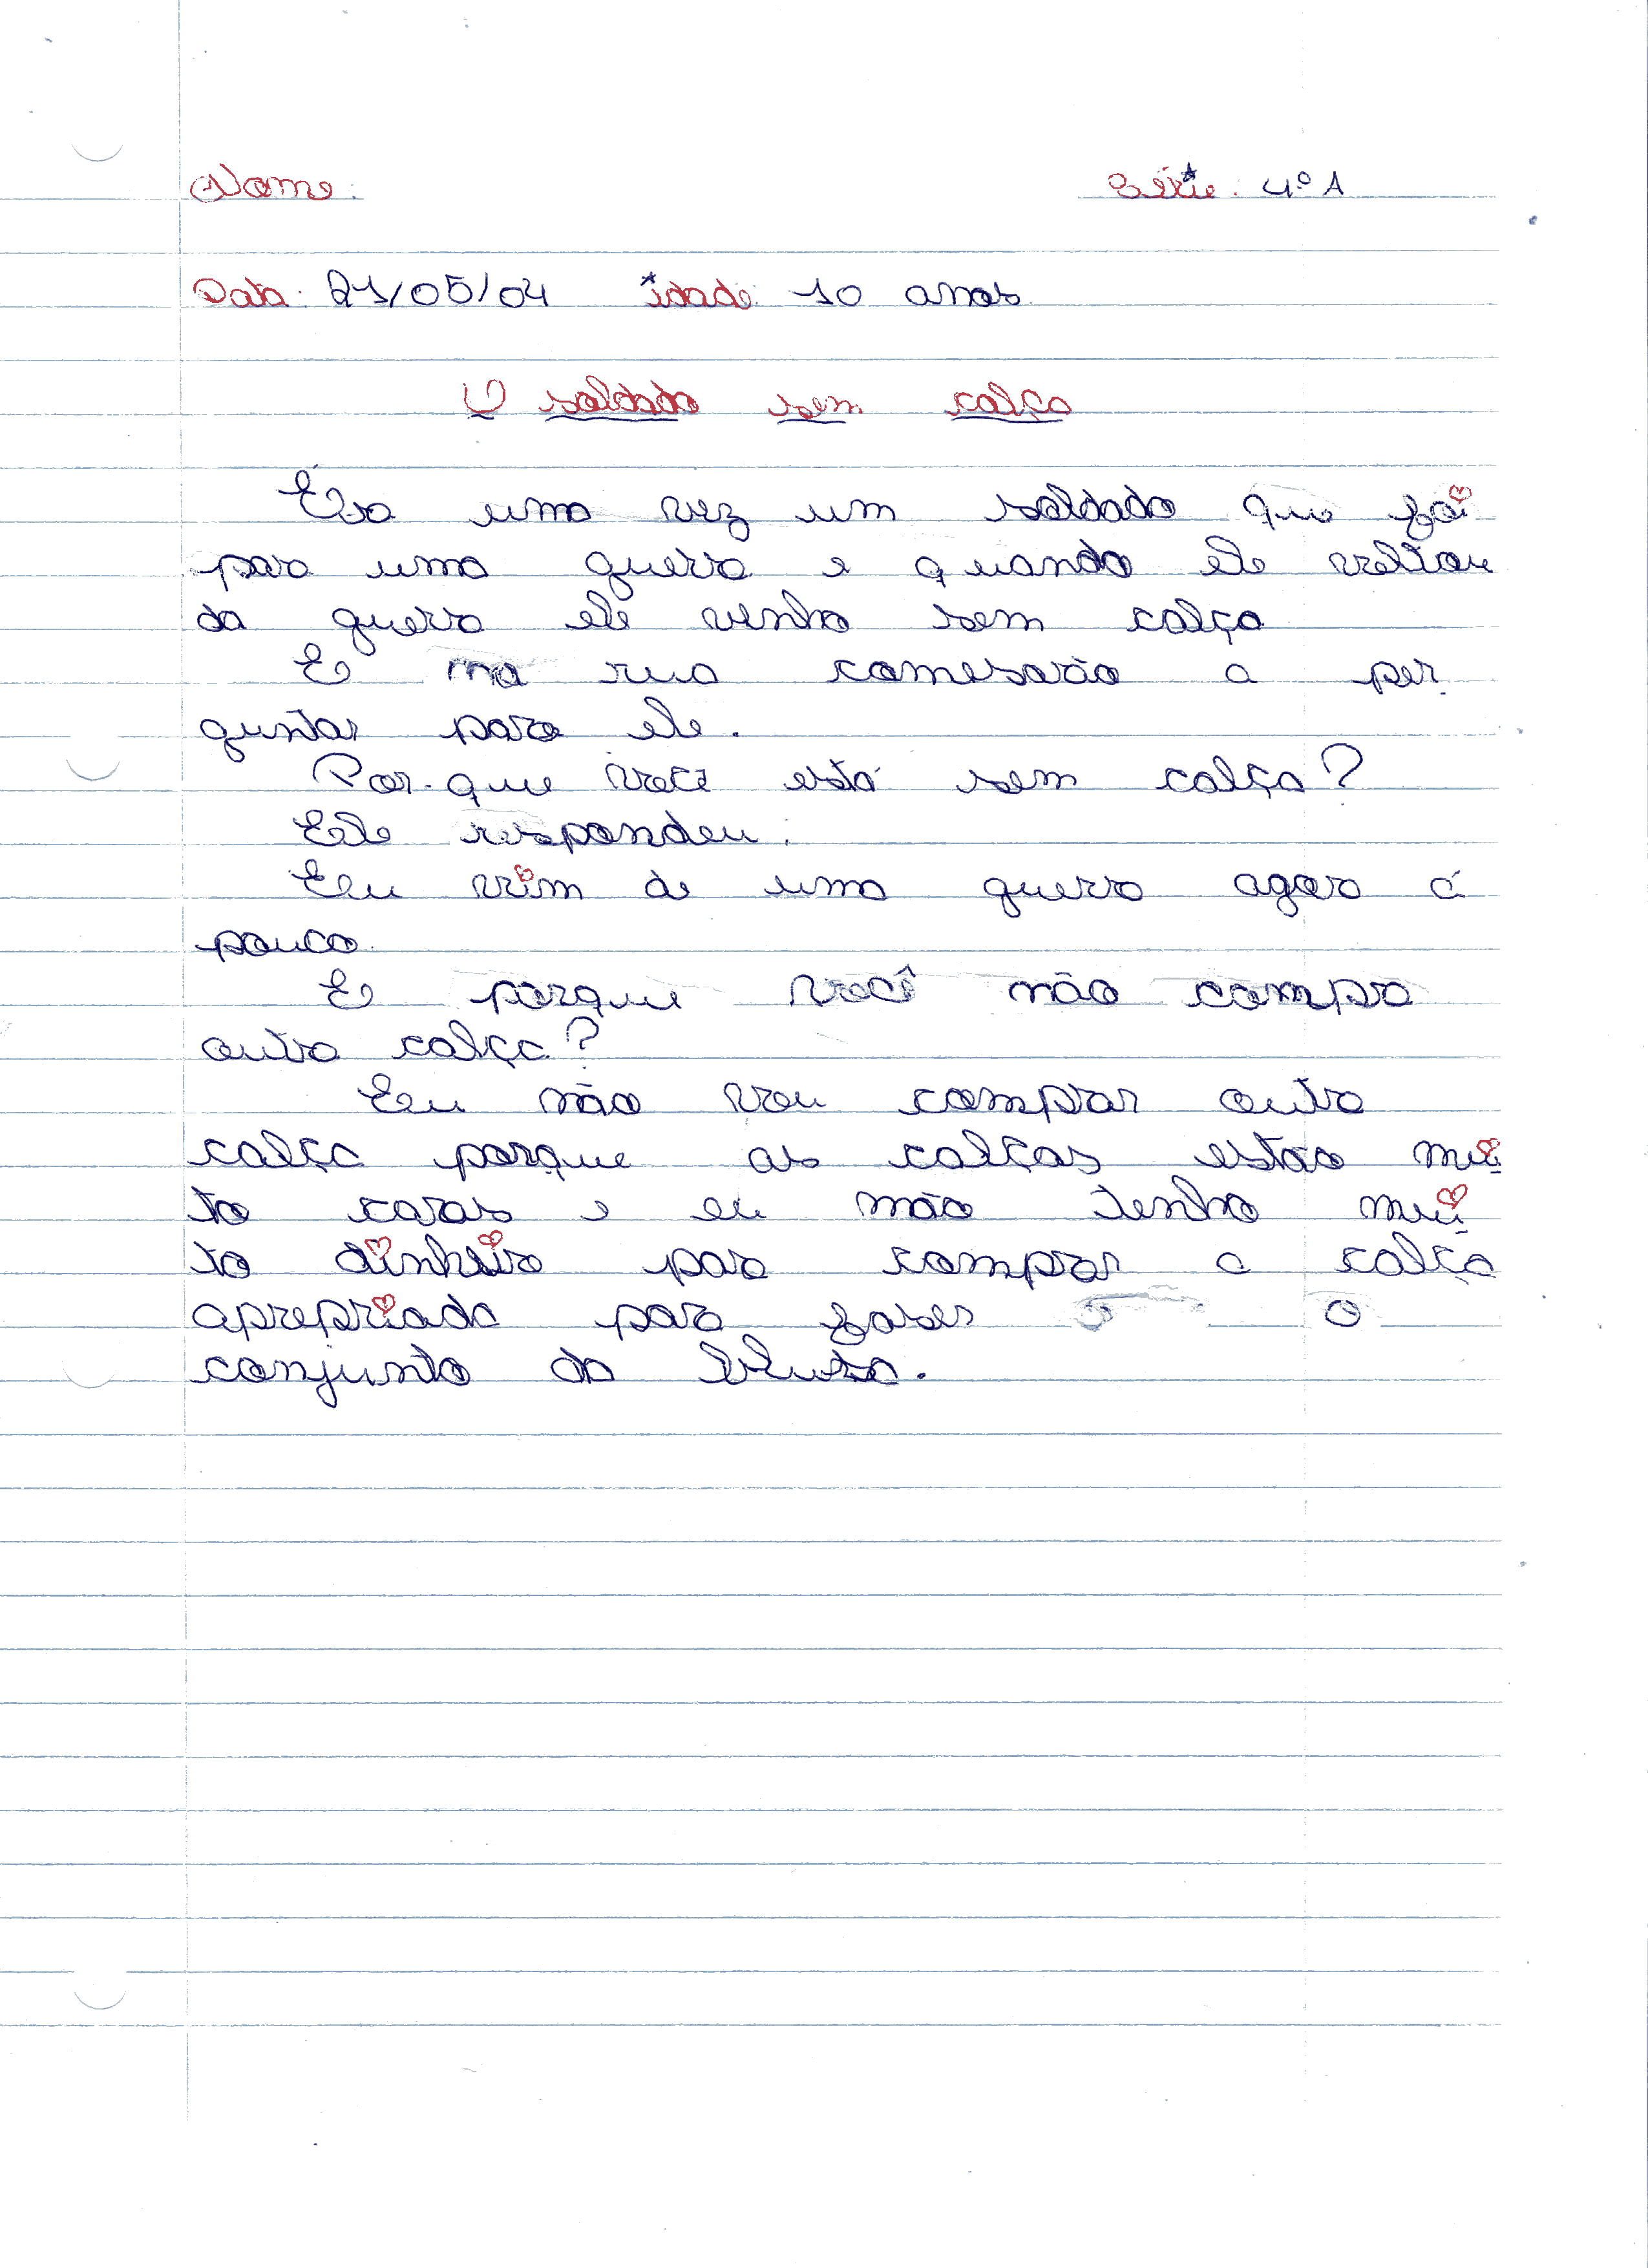 Nome: Série: 4º A
Data: 21/05/04 idade: 10 anos
O soldado sem calça
Era uma vez um soldado que foi
para uma guerra e quando ele voltou
da guerra ele venho sem calça
E na rua comesarão a per
guntar para ele.
Por que você está sem calça?
Ele respondeu:
Eu vim de uma guerra agora á
pouco.
E porque você não compra
outra calça?
Eu não vou comprar outra
calça porque as calças estão mui
to caras e eu não tenho mui
to dinheiro para comprar a calça
apropriada para fazer o
conjunto da blusa.